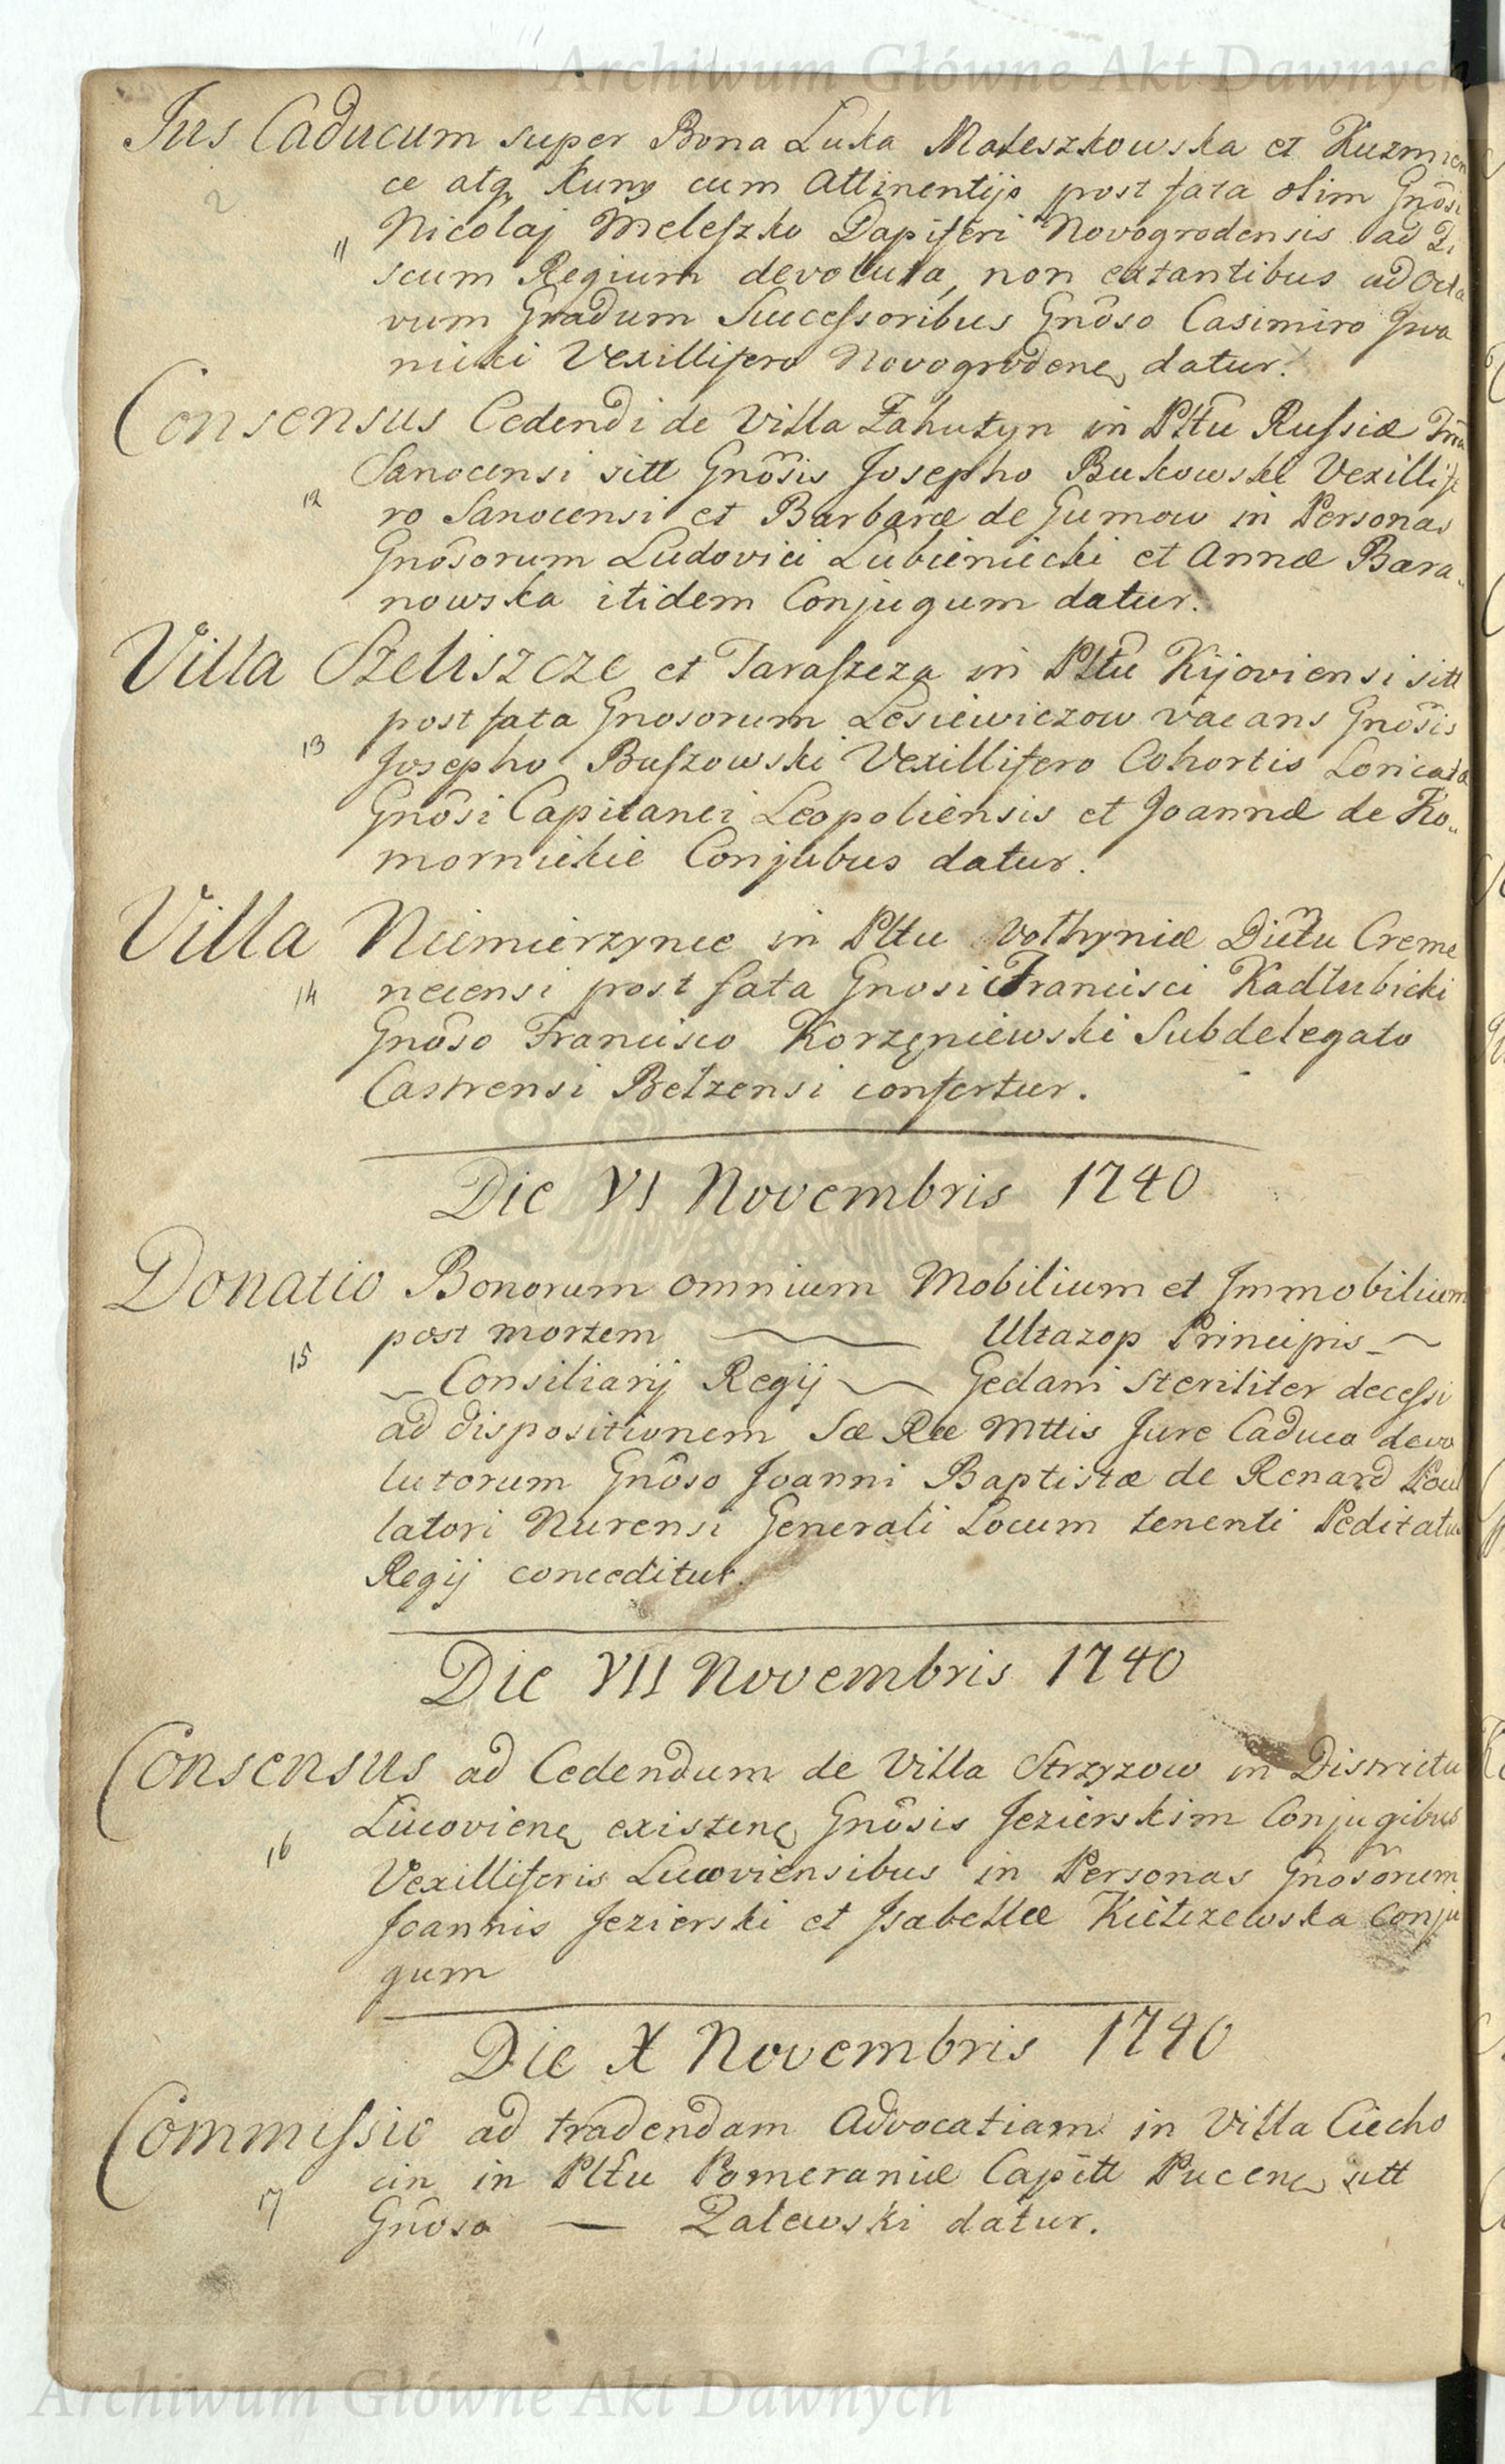 Archiwum Główne Akt Dawnych
Jus Caducum super Bona Luka Maleszkowska et Kuzmien
ce atq, Kuny cum Attinentijs post fata olim Gnosi
2
11
Nicolaj Meleszko Dapiferi Novogrodensis ad Fi
scum Regium devoluta, non extantibus ad Octa
vum Gradum Successoribus Gnoso Casimiro Jwa
nicki Vexillifero Novogrodene, datur.
Consensus Cedendi de Villa Zahutyn in Pltu Russiæ
Sanocensi sitt Gnosis Josepho Bukowski Vexillife
12
ro Sanocensi et Barbaræ de Gumow in Personas
Gnosorum Ludovici Lubieniecki et Annæ Bara
nowska itidem Conjugum datur.
Villa Szeliszcze et Taraszcza in Pltu Kijoviensi sitt
post fata Gnosorum Lesiewiczow vacans Gnosis
13
Josepho Buszowski Vexillifero Cohortis Loricatæ
Gnosi Capitanei Leopoliensis et Joannæ de Ko
mornickie Conjubus datur.
Villa Niemierzynce in Pltu Volhyniæ Dictu Creme
14
necensi post fata Gnosi Francisci Kadłubicki
Gnoso Francisco Korzęniewski Subdelegato
Castrensi Bełzensi confertur.
Die VI Novembris 1740
Donatio Bonorum omnium Mobilium et Jmmobilium
15
post mortem — Ultazop Principis —
— Consiliarij Regij — Gedani steriliter decessi
ad dispositionem Sæ Ræ Mttis Jure Caduco devo
lutorum Gnoso Joanni Baptistæ de Renard
latori Nurensi Generali Locum tenenti Peditatus
Regij conceditur.
Die VII Novembris 1740
Consensus ad Cedendum de Villa Strzyzow in Districtu
16
Lucoviene, existene, Gnosis Jezierskim Conjugibus
Vexilliferis Lucoviensibus in Personas Gnosorum
Joannis Jezierski et Jsabellæ Kielczewska Conju
gum
Die X Novembris 1740
Commissio ad tradendam Advocatiam in Villa Ciecho
17
cin in Pltu Pomeraniæ Capitt Pucene, sitt
Gnoso — Zalewski datur.
Archiwum Główne Akt Dawnych